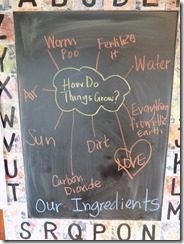 A B C D E
Worm
Poo
Fertilizer
it
Water
How Do
Things Grow?
Air
Everything
from the
earth
Sun
Dirt
LOVE
Carbon
Dioxide
Our Ingredients
X
W
V
U
T
S R Q P O N